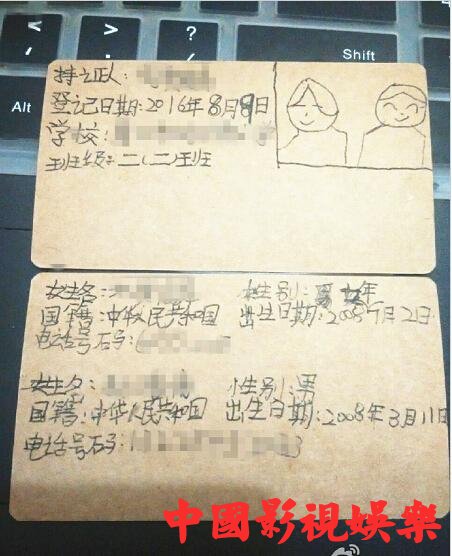 < > ? /
Shift
Alt
持证人:
登记日期:2016年8月9日
学校:
班级:二(二)班
姓名: 性别:
国籍:中华人民共和国 出生日期:2008 7月2日
电话号码:
姓名: 性别:男
国籍:中华人民共和国 出生日期:2008年3月11日
电话号码:
中國影視娛樂